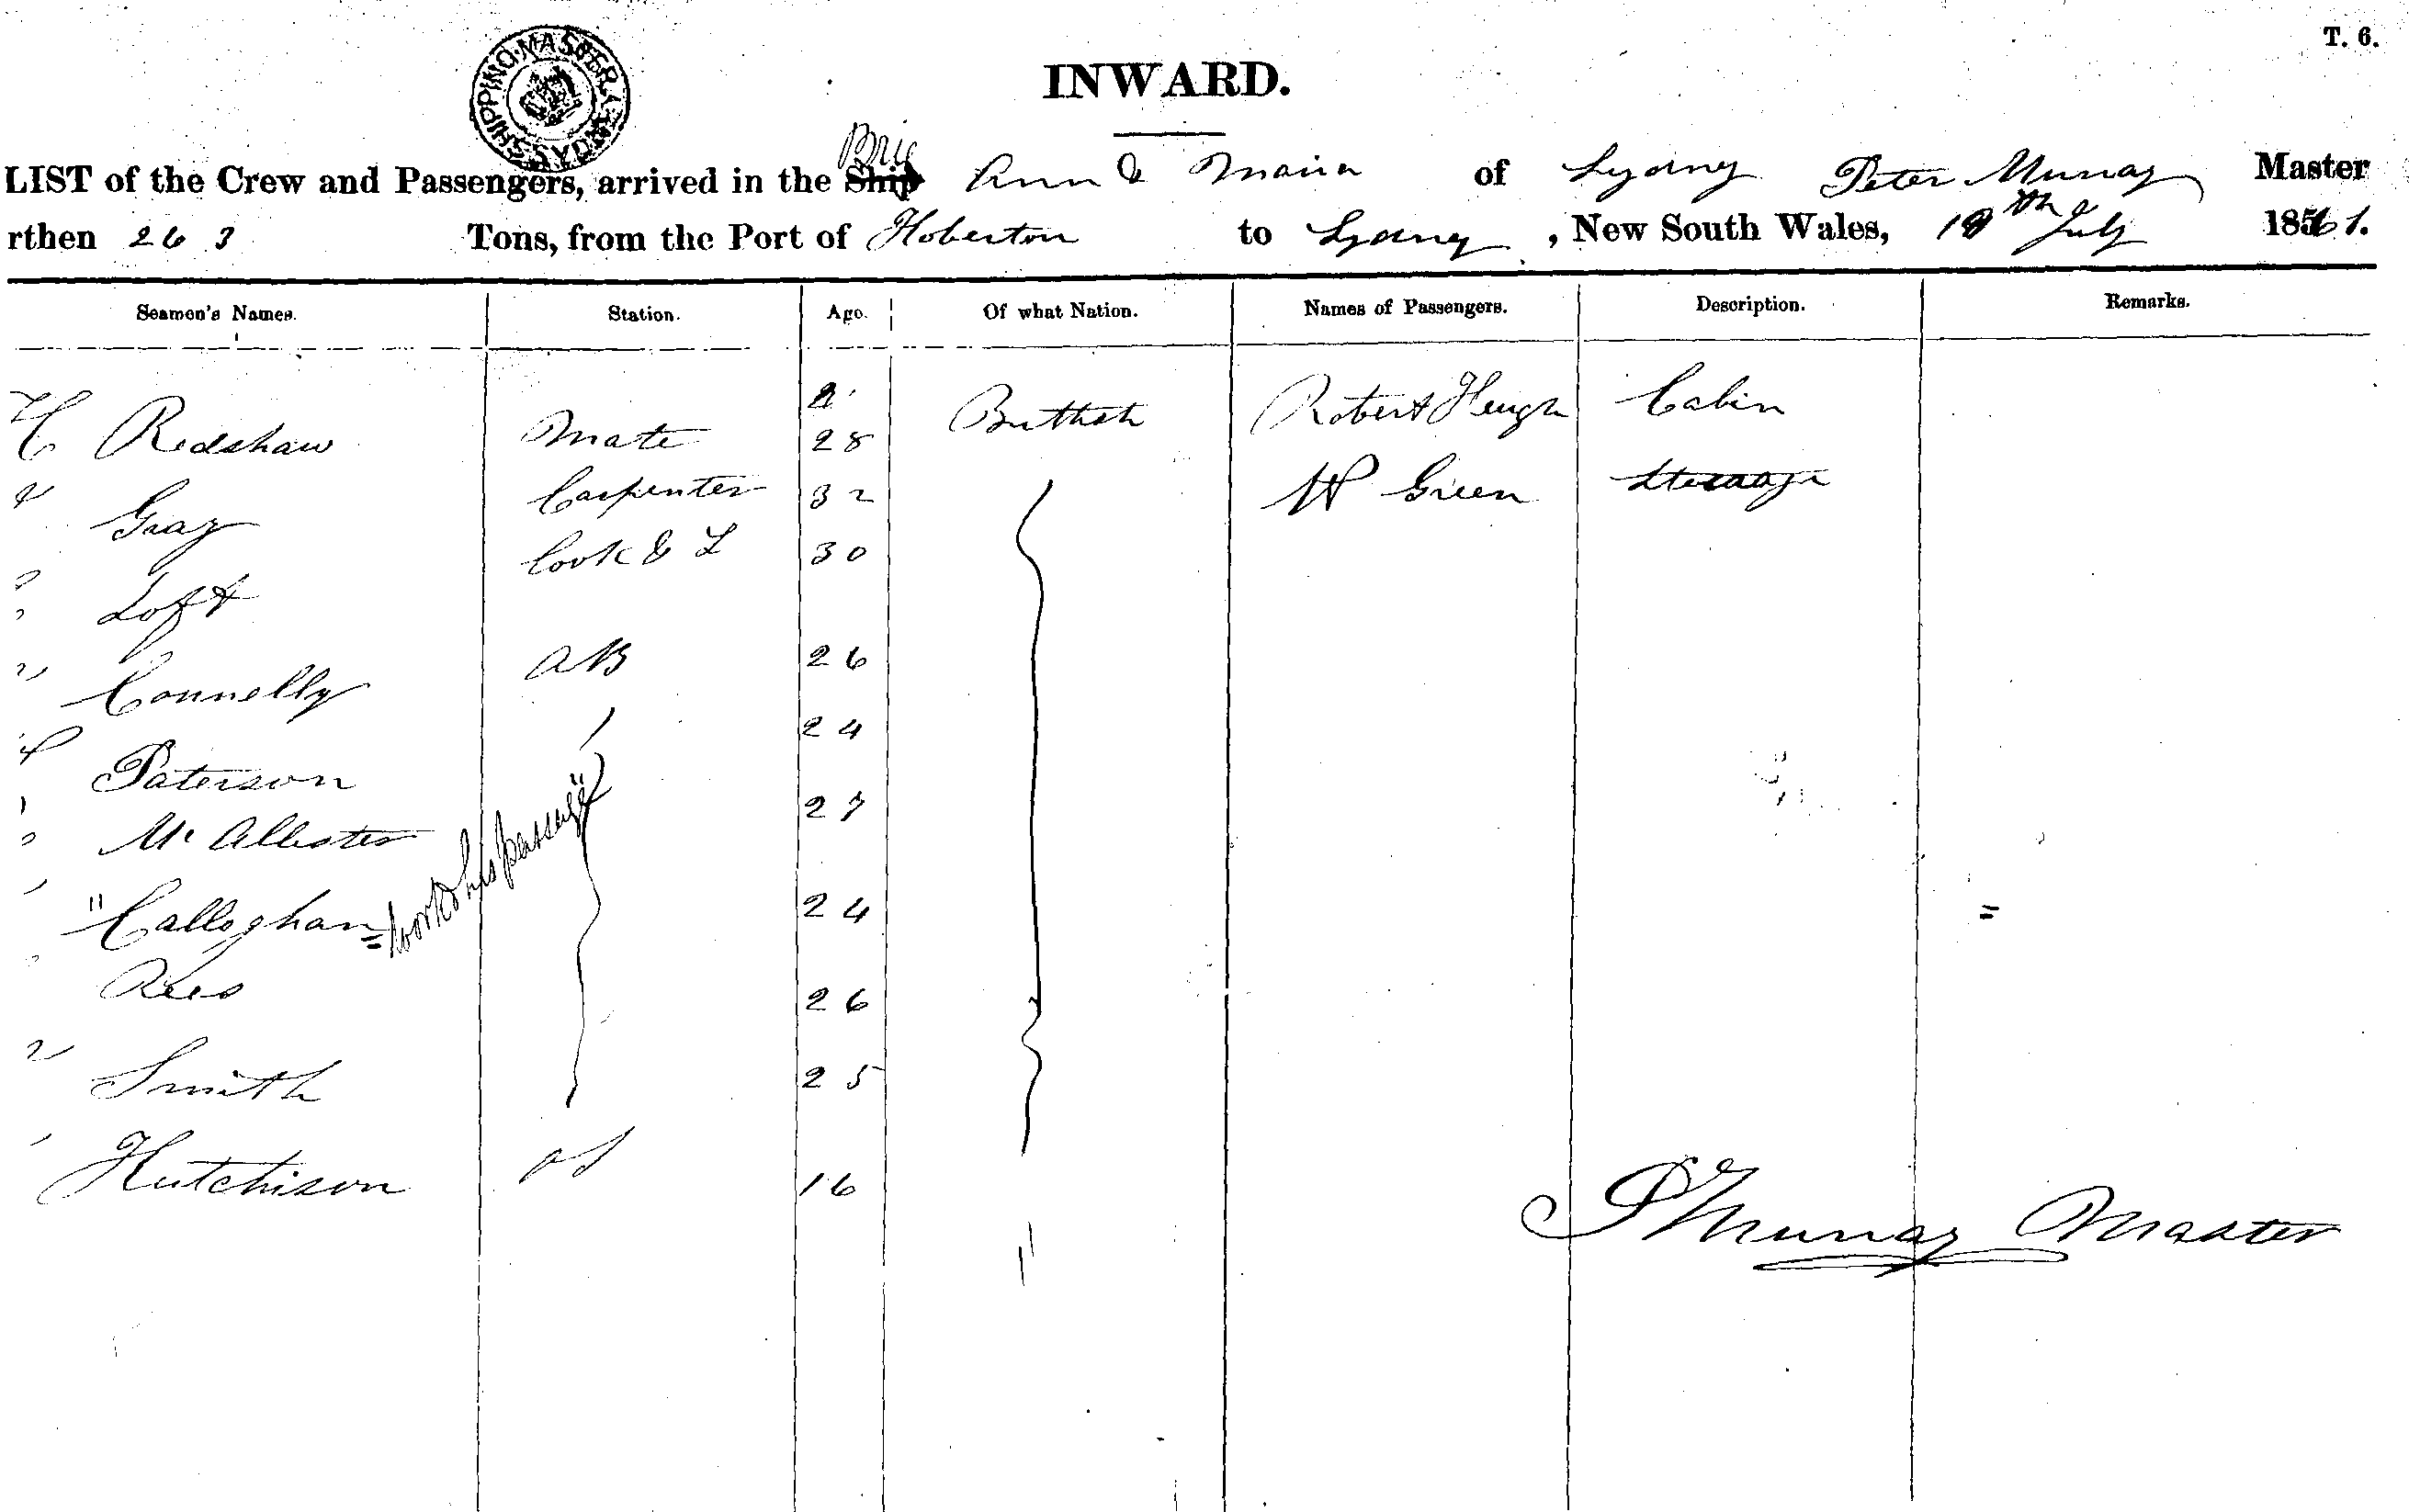 T. 6.
SHIPPING MASTER SYDNEY
INWARD.
LIST of the Crew and Passengers, arrived in the Ship Brig Ann & Maria of Sydney Peter Murray Master
rthen 263 Tons, from the Port of Hoberton to Sydney, New South Wales, 18th July 1861.
Seamen's Names. Station. Age. Of what Nation. Names of Passengers. Description. Remarks.
Redshaw Mate 28 Brittish Robert Heugh Cabin
Gray Carpenter 32 W Green Steerage
Loft Cook & S 30
Connelly AB 26
Paterson 24
McAllester 27
"Calloghan = work'd his passage" 24
Rees 26
Smith 25
Hutchison OS 16
P Murray Master